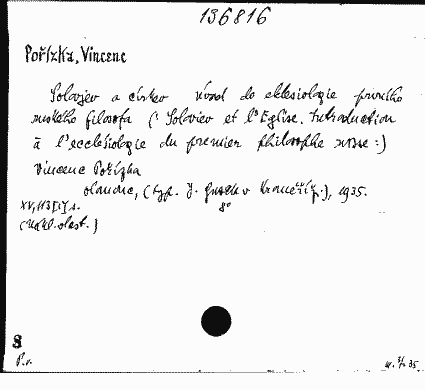 136816
Pořízka, Vincenc
Solovjev a církev Úvod do eklesiologie prvního
ruského filosofa (: Soloviev et l'Eglise. Introduction
à l'ecclésiologie du premier philosophe russe :)
Vincenc Pořízka
Olomouc, (typ. J. v Kroměříži), 1935.
XV, 113 [1] s. 8°
(Nákl. vlast.)
8
P.v.
35